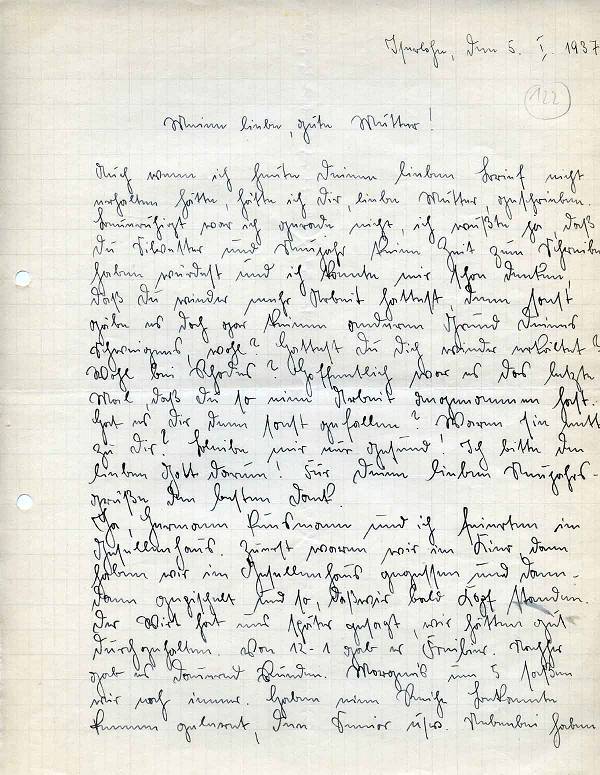 Iserlohn, den 5. I. 1937
122
Meine liebe, gute Mutter!
Auch wenn ich heute Deinen lieben Brief nicht
erhalten hätte, hätte ich Dir, liebe Mutter, geschrieben.
Beunruhigt war ich gerade nicht, ich wußte ja, daß
Du Silvester und Neujahr keine Zeit zum Schreiben
haben würdest und ich konnte mir schon denken,
daß Du wieder mehr Arbeit hattest, denn sonst
gäbe es doch gar keinen anderen Grund Deines
Schweigens, wohl? Hattest Du Dich wieder erkältet?
Wohl bei Rhodes? Hoffentlich war es das letzte
Mal, daß Du so eine Arbeit angenommen hast.
Hat es Dir denn sonst gefallen? Waren sie nett
zu Dir? Bleibe mir nur gesund! Ich bitte den
lieben Gott darum! Für Deine lieben Neujahrs-
grüße den besten Dank.
Ja, Hermann und ich feierten im
Gesellenhaus. Zuerst waren wir im Kino, dann
haben wir im Gesellenhaus gegessen und dann -
dann gepichelt und so, daß wir bald Kopf standen.
Der Wirt hat uns später gesagt, wir hätten gut
durchgehalten. Von 12 - 1 gab er Freibier. Nachher
gab es dauernd Runden. Morgens um 5 saßen
wir noch immer. Haben eine Reihe Bekannte
kennen gelernt, den Senior usw. Nebenbei haben